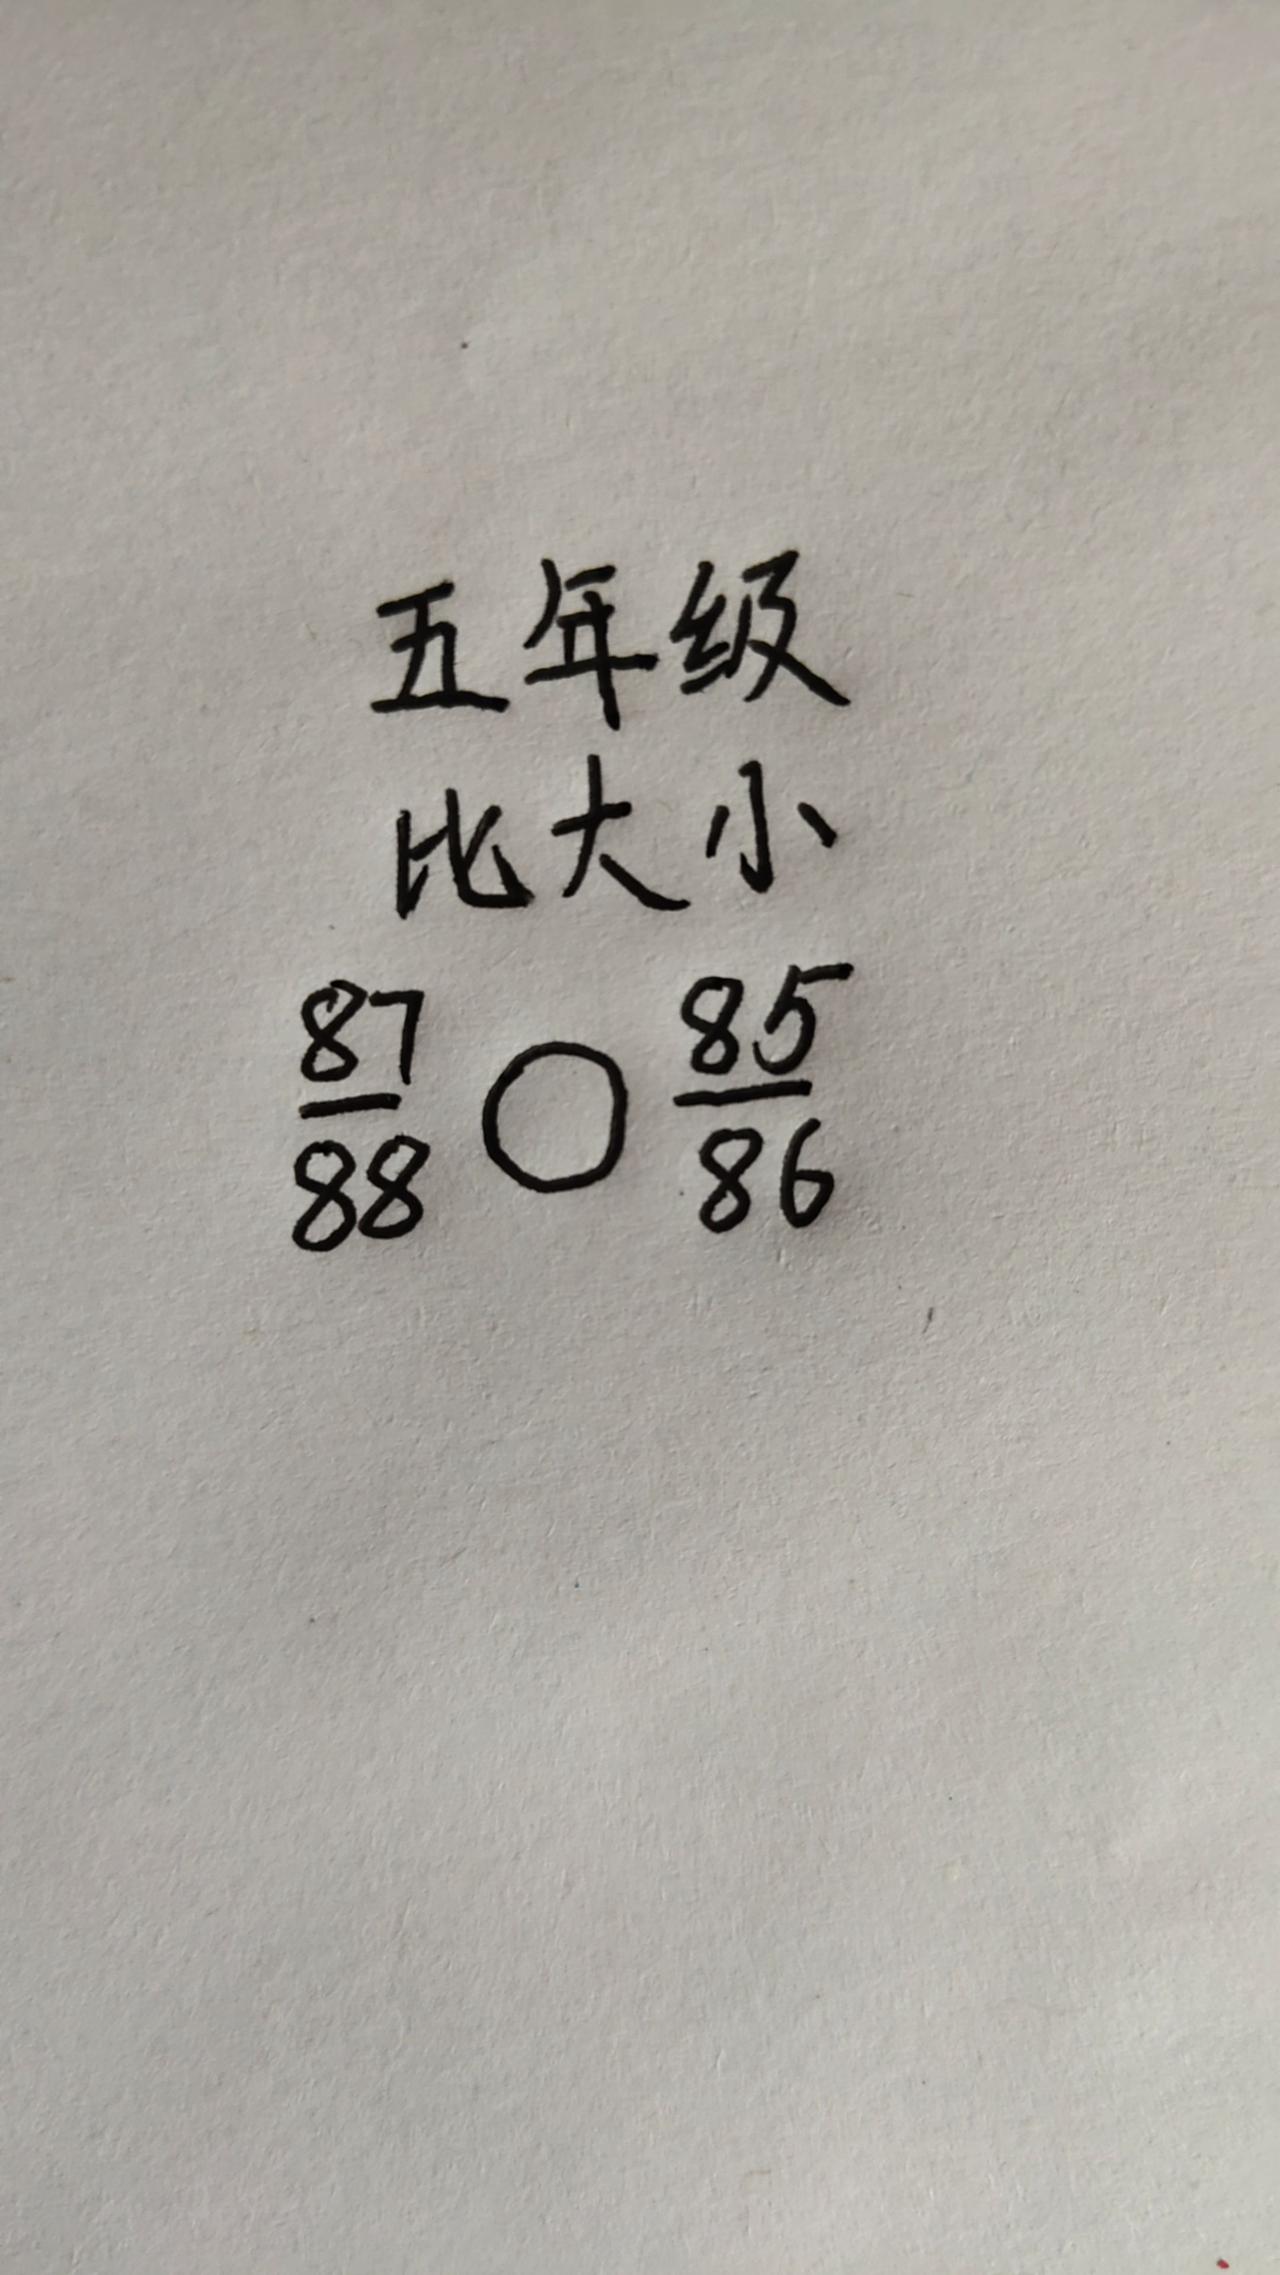 五年级
比大小
87/88 ○ 85/86